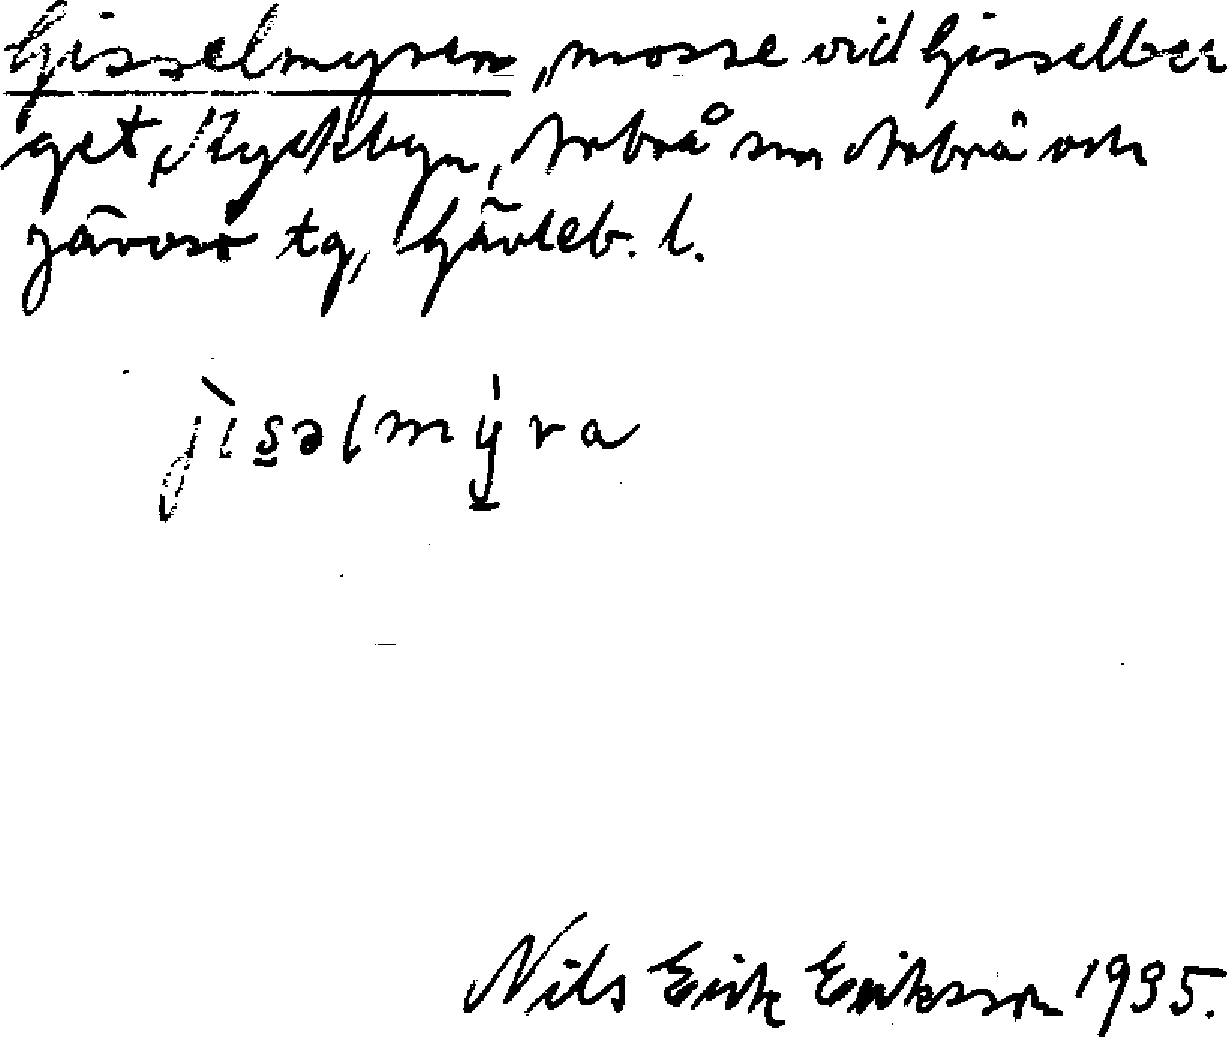 Gisselmyren, mosse vid Gisselber
get, Kyrkbyn, Arbrå sn, Arbrå och
Järvsö tg, Gävleb. l.
jìsəlmýra
Nils Erik Eriksson 1935.